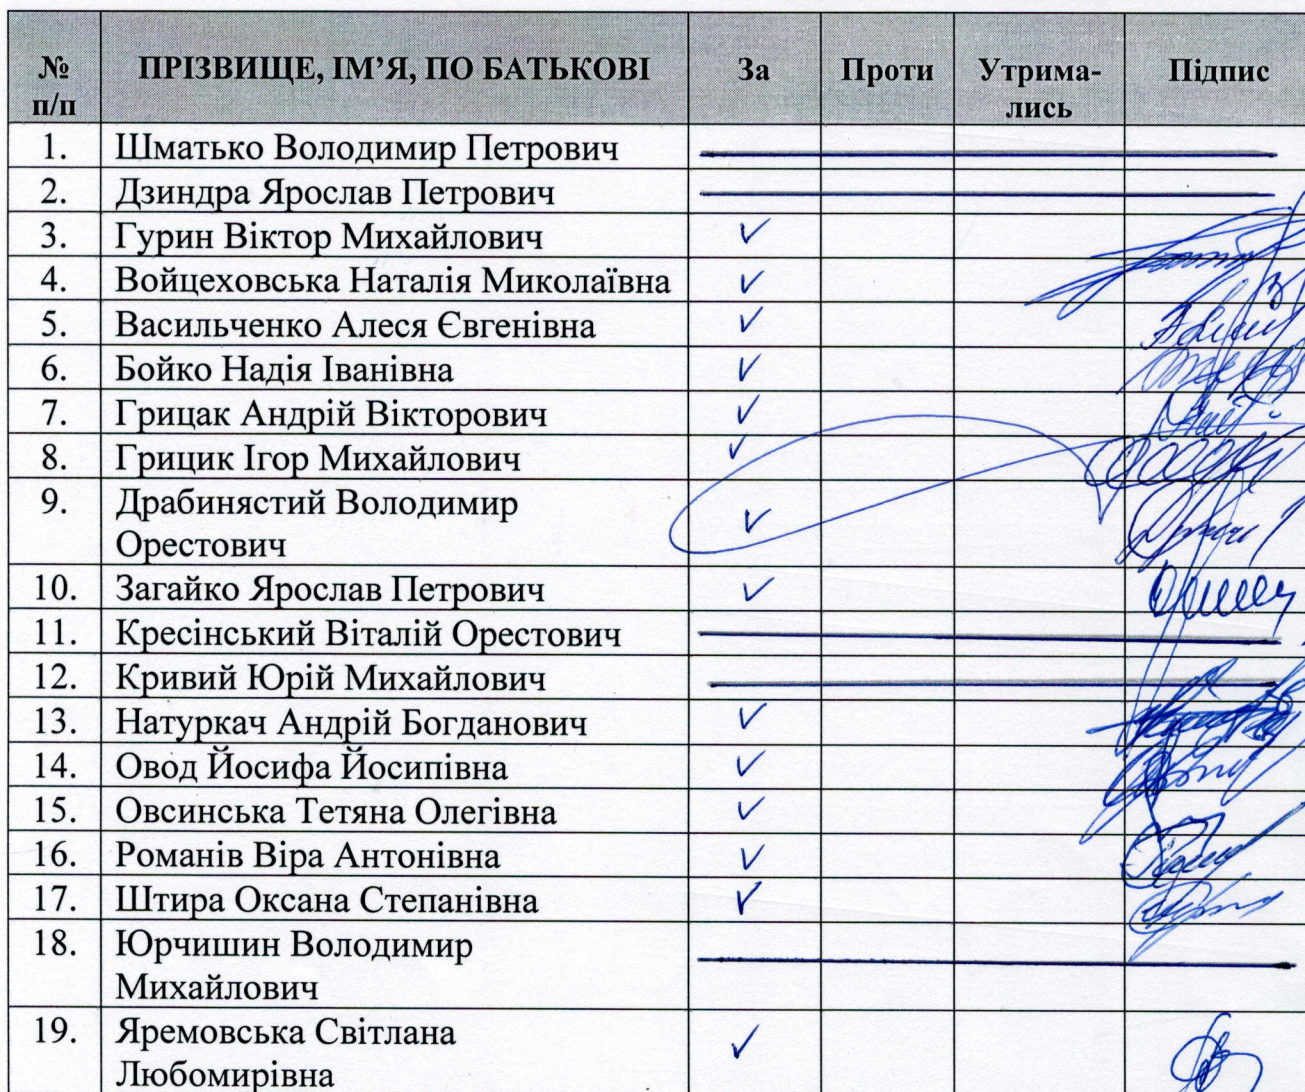 № ПРІЗВИЩЕ, ІМ’Я, ПО БАТЬКОВІ За Проти Утрима- Підпис
п/п лись
1. Шматько Володимир Петрович
2. Дзиндра Ярослав Петрович
3. Гурин Віктор Михайлович
4. Войцеховська Наталія Миколаївна
5. Васильченко Алеся Євгенівна
6. Бойко Надія Іванівна
7. Грицак Андрій Вікторович
8. Грицик Ігор Михайлович
9. Драбинястий Володимир
Орестович
10. Загайко Ярослав Петрович
11. Кресінський Віталій Орестович
12. Кривий Юрій Михайлович
13. Натуркач Андрій Богданович
14. Овод Йосифа Йосипівна
15. Овсинська Тетяна Олегівна
16. Романів Віра Антонівна
17. Штира Оксана Степанівна
18. Юрчишин Володимир
Михайлович
19. Яремовська Світлана
Любомирівна